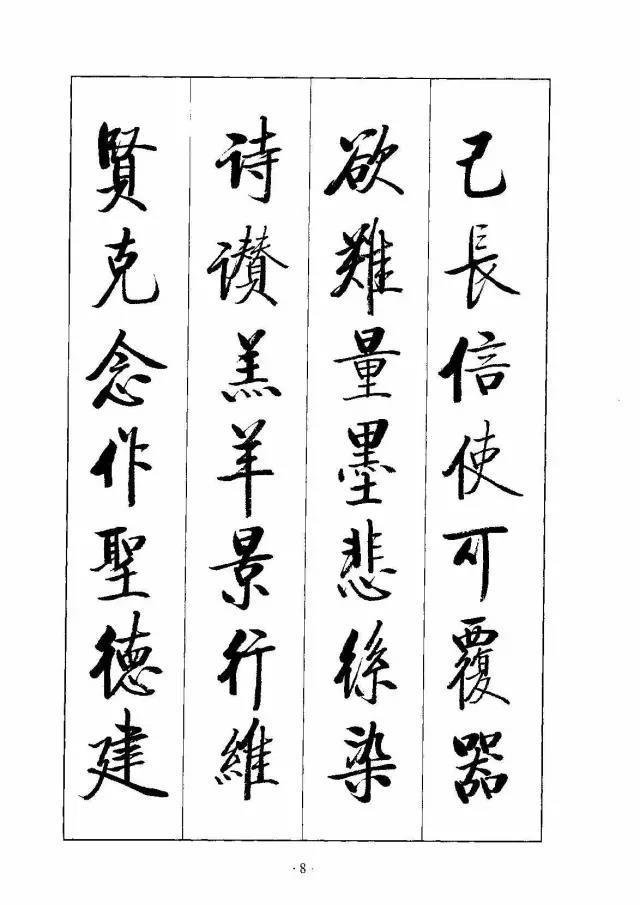 己長信使可覆器
欲難量墨悲絲染
詩讃羔羊景行維
賢克念作聖德建
·8·